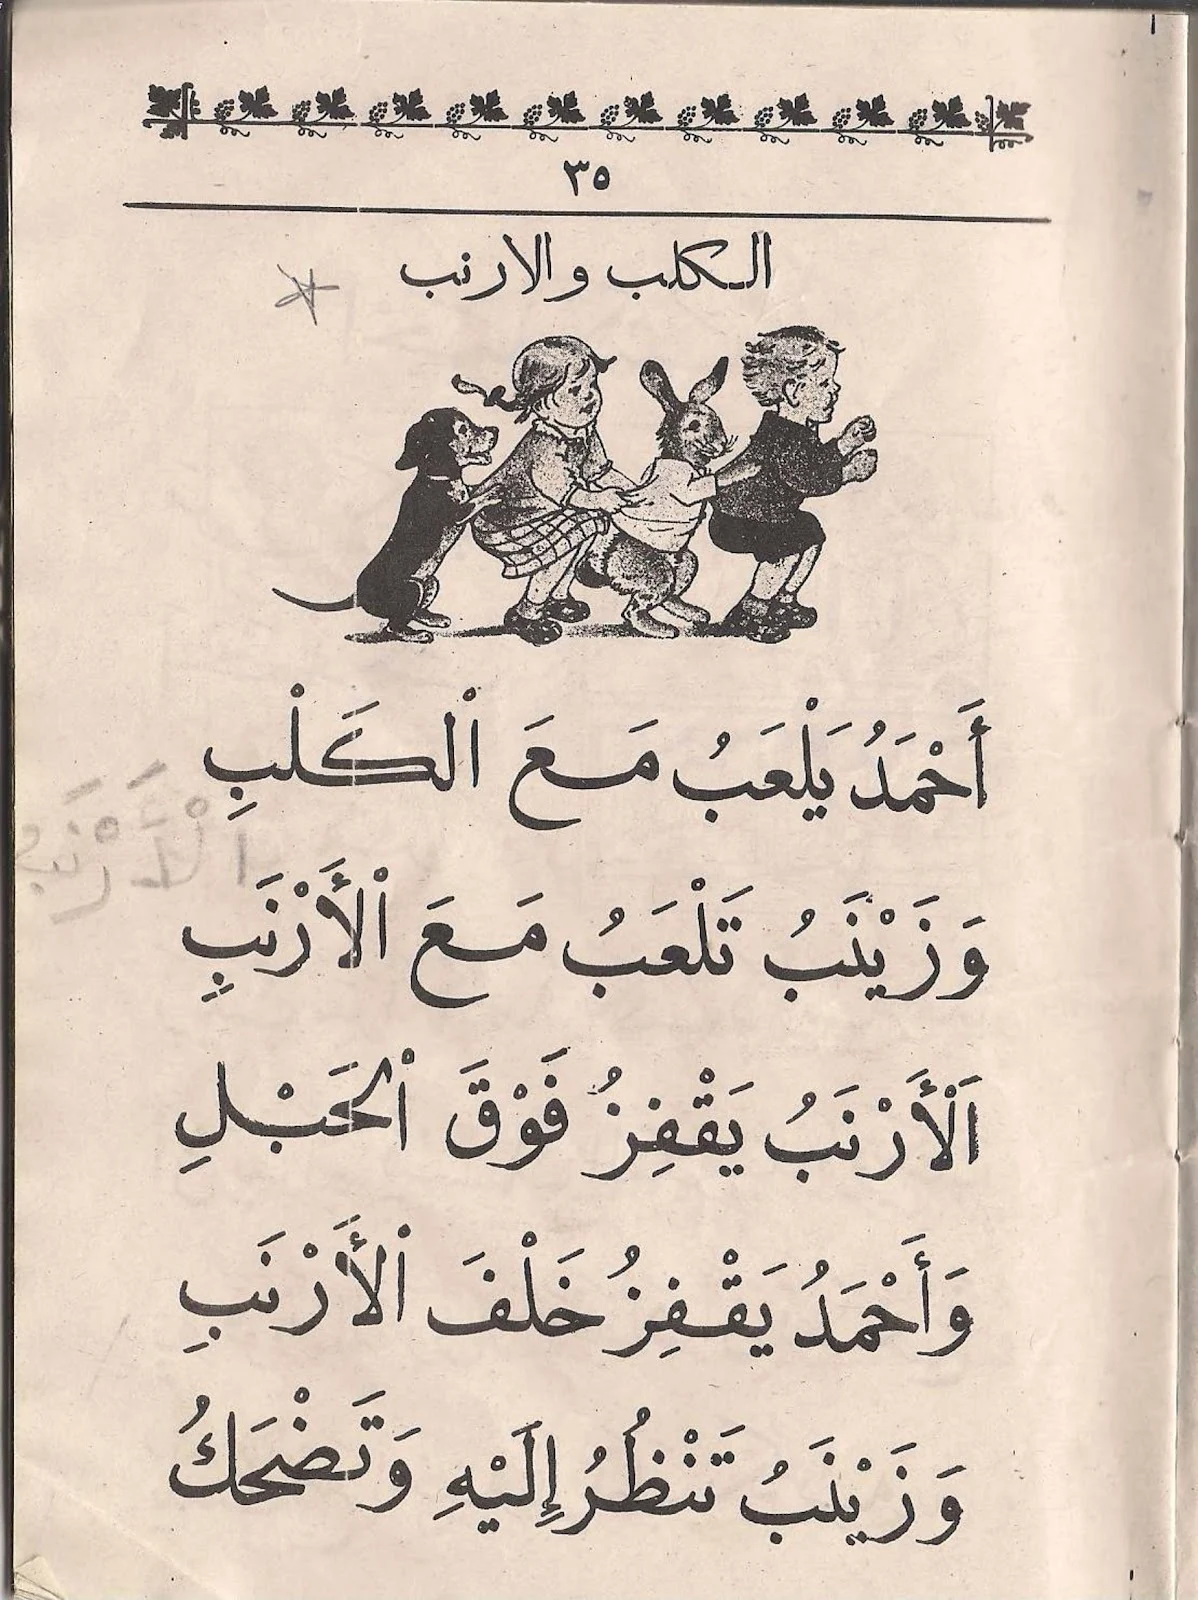 ٣٥
الكلب والارنب
أَحْمَدُ يَلْعَبُ مَعَ ٱلْكَلْبِ
ٱلْأَرْنَبُ
وَزَيْنَبُ تَلْعَبُ مَعَ ٱلْأَرْنَبِ
اَلْأَرْنَبُ يَقْفِزُ فَوْقَ ٱلْحَبْلِ
وَأَحْمَدُ يَقْفِزُ خَلْفَ ٱلْأَرْنَبِ
وَزَيْنَبُ تَنْظُرُ إِلَيْهِ وَتَضْحَكُ